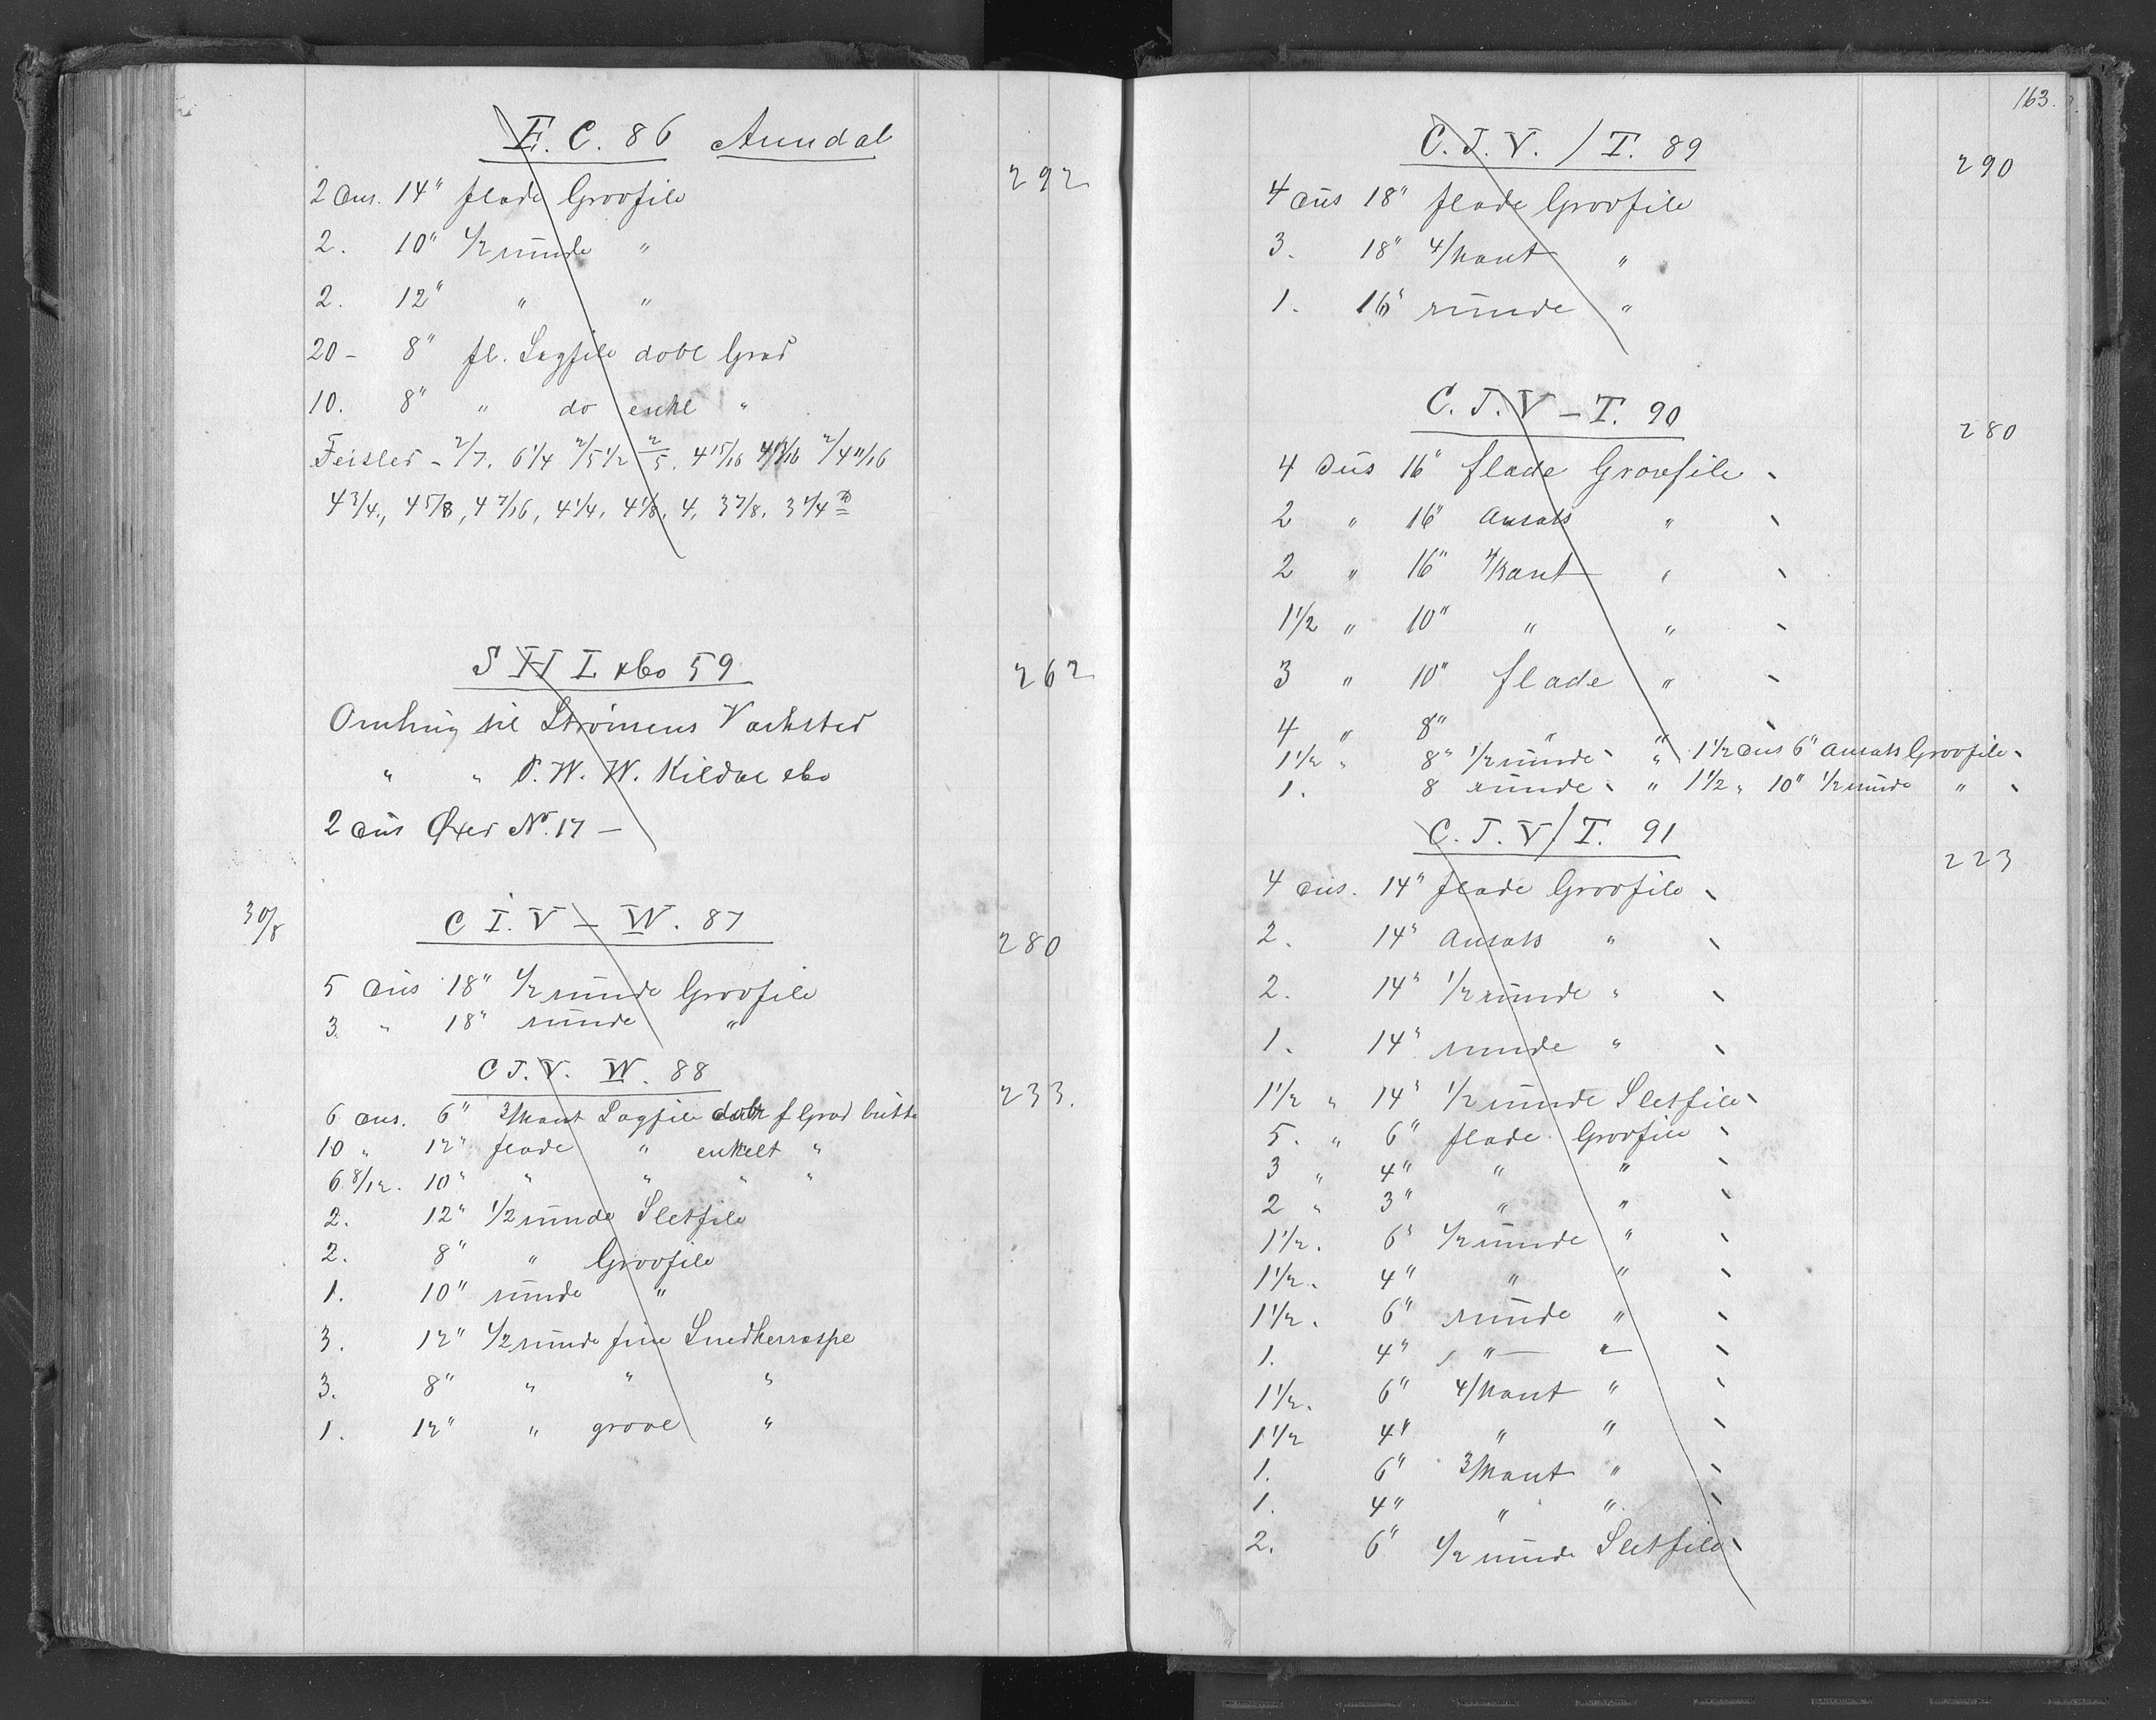 E. C. 86 Arendal
292
2 dus. 14" flade Grovfile
2. 10" 1/2 runde "
2. 12" " "
20 - 8" fl. Sagfile dobl Grad
10. 8" " do enkl "
Feisler - 2/7. 6 1/4 2/5 1/2 2/5. 4 15/16 4 13/16 2/4 11/16
4 3/4., 4 5/8, 4 7/16, 4 1/4, 4 1/8, 4, 3 7/8. 3 1/4
S H L & Co 59
262
til Strømens Værksted
" " P. W. W. Kildal & Co
2 dus Øxer No. 17 -
30/8
C I. V - W. 87
280
5 dus 18" 1/2 runde Grovfile
3 " 18" runde "
C J. V. W. 88
233.
6 dus. 6" 3/kant Sagfile dobl f Grad butte
10 " 12" flade " enkelt "
6 8/12. 10" " " " "
2. 12" 1/2 runde Sletfile
2. 8" " Grovfile
1. 10" runde "
3. 12" 1/2 runde fine Snedkerraspe
3. 8" " " "
1. 12" " grove "
163.
C. J. V. / T. 89
290
4 dus 18" flade Grovfile
3. 18" 4/kant "
1. 16" runde "
C. J. V - T. 90
280
4 dus 16" flade Grovfile
2 " 16" Ansats "
2 " 16" 4/kant "
1 1/2 " 10" " "
3 " 10" flade "
4 " 8" " "
1 1/2 " 8" 1/2 runde " 1 1/2 dus 6" Ansats Grovfile
1. 8 runde " 1 1/2 " 10" 1/2 runde "
C. J. V / T. 91
223
4 dus. 14" flade Grovfile
2. 14" Ansats "
2. 14" 1/2 runde "
1. 14" runde "
1 1/2 " 14" 1/2 runde Sletfile
5. " 6" flade Grovfile
3 " 4" " "
2 " 3" " "
1 1/2. 6" 1/2 runde "
1 1/2. 4" " "
1 1/2. 6" runde "
1. 4" " "
1 1/2. 6" 4/kant "
1 1/2 4" " "
1. 6" 3/kant "
1. 4" " "
2. 6" 1/2 runde Sletfile